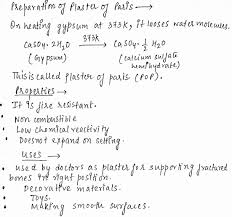 Preparation of Plaster of Paris →
On heating gypsum at 373K, it losses water molecules.
CaSO4 · 2H2O 373K→ CaSO4 · 1/2 H2O
(Gypsum) (calcium sulfate
hemihydrate)
This is called plaster of paris (POP).
Properties →
• It is fire resistant.
• Non combustible
• Low chemical reactivity
• Doesnot expand on setting.
Uses →
• used by doctors as plaster for supporting fractured
bones in right position.
• Decorative materials.
• Toys.
• Making smooth surfaces.